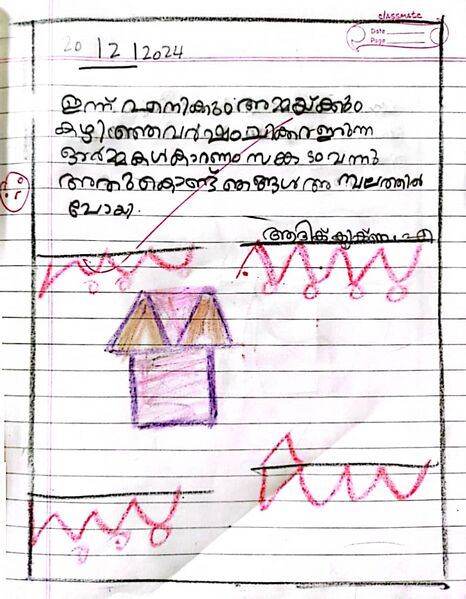 classmate
Date
Page
20 12 2024
ഇന്ന് എനിക്കും അമ്മയ്ക്കും
കഴിഞ്ഞവർഷം
ഓർമ്മകൾകാരണം സങ്കടം വന്നു
അതുകൊണ്ട് ഞങ്ങൾ അമ്പലത്തിൽ
പോയി.